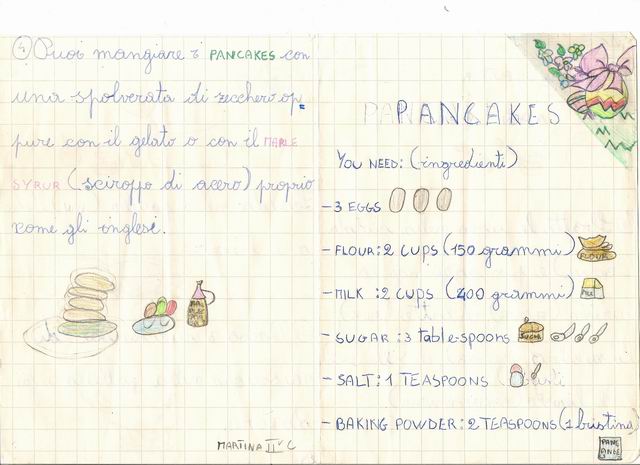 4) Puoi mangiare i PANCAKES con
una spolverata di zucchero op
pure con il gelato o con il MAPLE
SYRUR (sciroppo di acero) proprio
come gli inglesi.
MARTINA II° C
PANCAKES
YOU NEED: (ingredienti)
- 3 EGGS
- FLOUR: 2 CUPS (150 grammi)
FLOUR
- MILK : 2 CUPS (400 grammi)
MILK
- SUGAR : 3 table-spoons
SUGAR
- SALT: 1 TEASPOONS
- BAKING POWDER: 2 TEASPOONS (1 bustina)
PANE